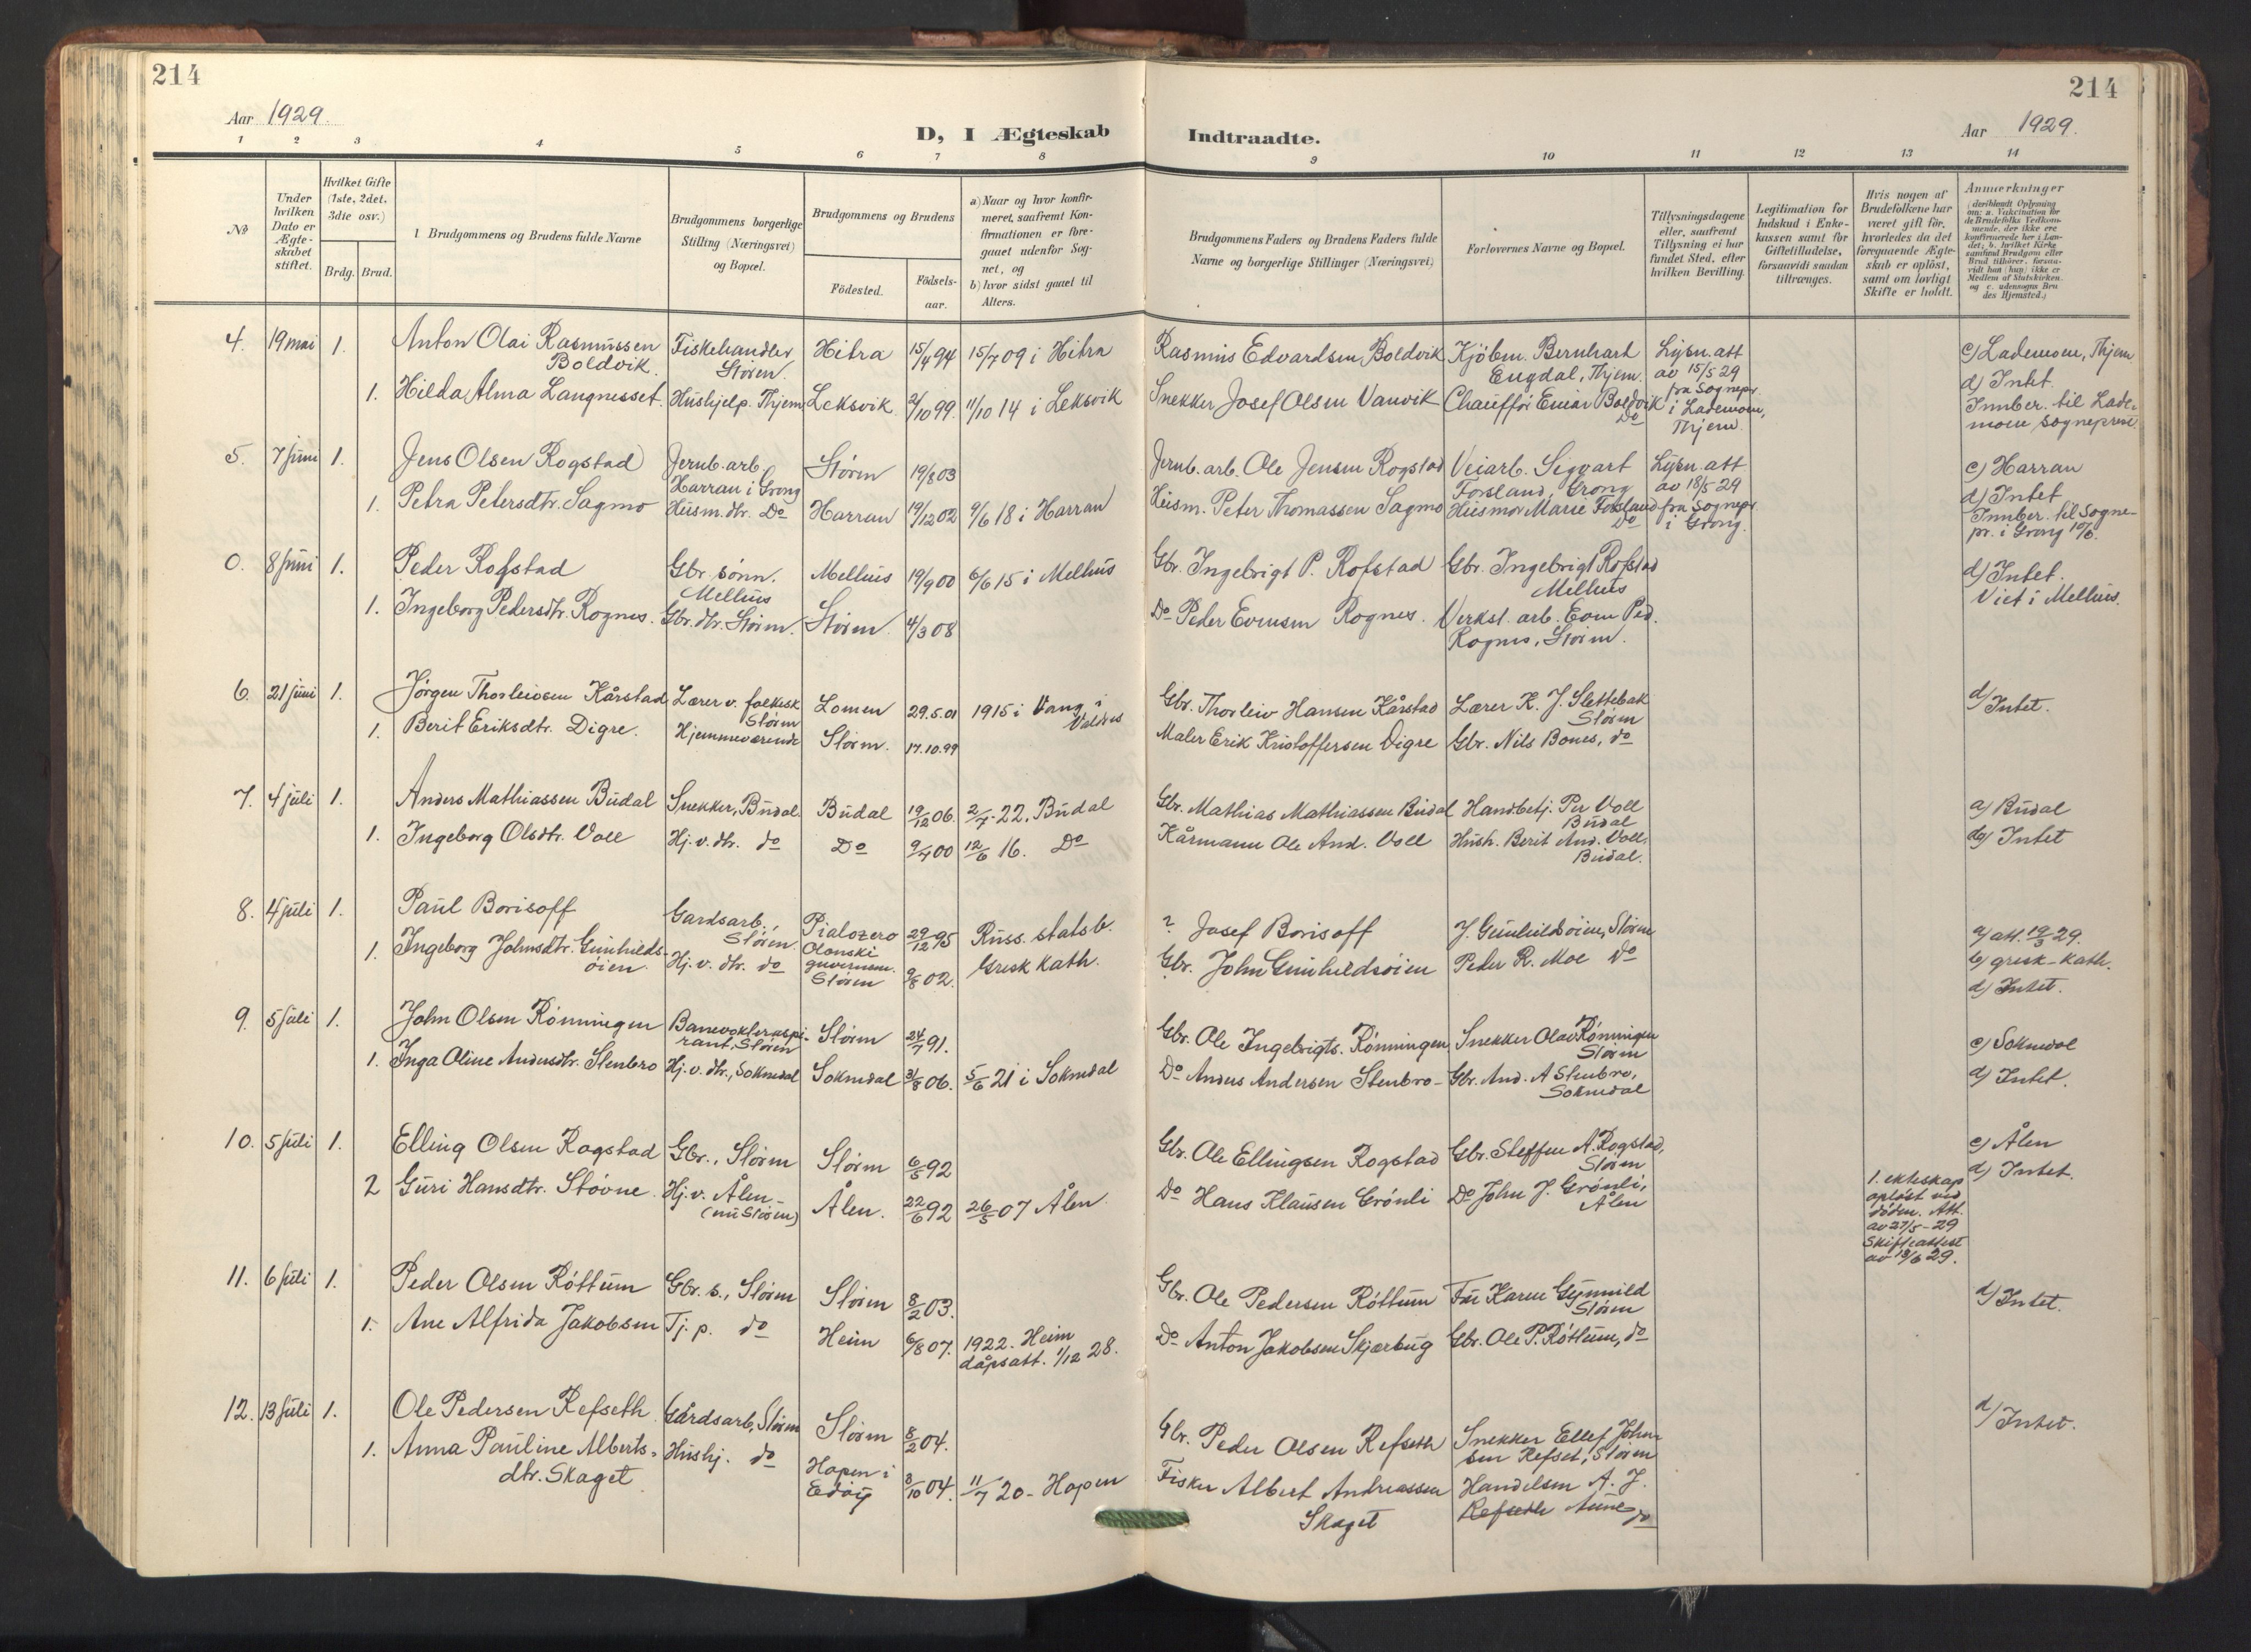 214
214
Aar 1929.
D, I Ægteskab
Indtraadte.
Aar 1929.
1 2 3 4 5 6 7 8 9 10 11 12 13 14
No
Under
hvilken
Dato er
Ægte-
skabet
stiftet.
Hvilket Gifte
(1ste, 2det,
3die osv.)
Brdg. Brud.
Brudgommens og Brudens fulde Navne
Brudgommens borgerlige
Stilling (Næringsvei)
og Bopæl.
Brudgommens og Brudens
Födested.
Födsels-
aar.
a) Naar og hvor konfir-
meret, saafremt Kon-
firmationen er fore-
gaaet udenfor Sog-
net, og
b) hvor sidst gaaet til
Alters.
Brudgommens Faders og Brudens Faders fulde
Navne og borgerlige Stillinger (Næringsvei)
Forlovernes Navne og Bopæl.
Tillysningsdagene
eller, saafremt
Tillysning ei har
fundet Sted, efter
hvilken Bevilling.
Legitimation for
Indskud i Enke-
kassen samt for
Giftetilladelse,
forsaavidt saadan
tiltrænges.
Hvis nogen af
Brudefolkene har
været gift för,
hvorledes da det
foregaaende Ægte-
skab er oplöst,
samt om lovligt
Skifte er holdt.
Anmærkninger
(deriblandt Oplysning
om: a. Vakcination for
de Brudefolks Vedkom-
mende, der ikke ere
konfirmerede her i Lan-
det; b. hvilket Kirke
samfund Brudgom eller
Brud tilhörer, forsaa-
vidt han (hun) ikke er
Medlem af Statskirken.
og c. udensogns Bru
des Hjemsted.)
4. 19 mai 1. Anton Olai Rasmussen
Boldvik.
Fiskehandler
Stören.
Hitra 15/4 94 15/7 09 i Hitra
Rasmus Edvardsen Boldvik
Kjöbm. Bernhart
Engdal, Thjem.
Lysn. att
av 15/5 29
fra Sognepr.
i Lademoen,
Thjem.
c) Lademoen, Thjem
d) Intet.
Innber. til Lade-
moen sogneprest
1. Hilda Alma Langnesset. Hushjelp. Thjem Leksvik. 2/10 99. 11/10 14 i Leksvik
Snekker Josef Olsen Vanvik
Chaufför Einar Boldvik
Do
5. 7 juni 1. Jens Olsen Rogstad
Jernb. arb.
Harran i Grong
Stören 19/8 03
Jernb. arb. Ole Jensen Rogstad
Veiarb. Sigvart
Forsland, Grong
Lysn. att
av 18/5 29
fra Sognepr.
i Grong.
c) Harran
d) Intet
Innber. til Sogne-
pr. i Grong 10/6.
1. Petra Petersdtr. Sagmo Husm.dtr. Do Harran 19/12 02 9/6 18 i Harran
Husm. Peter Thomassen Sagmo Husmor Marie Forsland
Do
0. 8 juni 1. Peder Rofstad
Gbr sönn.
Melhus
Melhus 19/9 00 6/6 15 i Melhus
Gbr. Ingebrigt P. Rofstad
Gbr. Ingebrigt Rofstad
Melhus
d) Intet.
Viet i Melhus.
1. Ingeborg Pedersdtr. Rognes. Gbr. dtr. Stören. Stören 4/3 08
Do Peder Evensen Rognes.
Verkst. arb. Even Ped.
Rognes, Stören.
6. 21 juni 1. Jörgen Thorleivsen Kårstad
Lærer v. folkesk
Stören
Lomen 29.5.01 1915 i Vang i
Valdres
Gbr. Thorleiv Hansen Kårstad
Lærer K. J. Slettebak
Stören
d) Intet.
1. Berit Eriksdtr. Digre. Hjemmeværende Stören. 17.10.99
Maler Erik Kristoffersen Digre Gbr. Nils Bones, do
7. 4 juli 1. Anders Mathiassen Budal Snekker, Budal. Budal 19/12 06. 2/7 22. Budal
Gbr. Mathias Mathiassen Budal
Handbetj. Per Voll
Budal
a) Budal
d) Intet
1. Ingeborg Olsdtr. Voll Hj. v. dtr. do Do 9/7 00 12/6 16. Do
Kårmann Ole And. Voll
Hush. Berit And. Voll.
Budal.
8. 4 juli 1. Paul Borisoff
Gardsarb.,
Stören.
Pialozero
Olonski
guvernem.
29/12 95 Russ. statsb.
Gresk Kath.
? Josef Borisoff
J. Gunhildsöien, Stören
a) att. 19/3 29.
b) gresk-kath.
d) Intet.
1. Ingeborg Johnsdtr. Gunhilds-
öien.
Hj. v. dtr. do Stören 9/8 02.
Gbr. John Gunhildsöien Peder R. Moe Do
9. 5 juli 1. John Olsen Rönningen
Banevokteraspi-
rant, Stören
Stören 24/7 91.
Gbr. Ole Ingebrigts. Rönningen,
Snekker Olav Rönningen
Stören
c) Soknedal
d) Intet.
1. Inga Oline Andersdtr. Stenbro Hj. v. dtr., Soknedal Soknedal 31/8 06. 5/6 21 i Soknedal
Do Anders Andersen Stenbro-
Gbr. And. A Stenbro,
Soknedal
10. 5 juli 1. Elling Olsen Rogstad Gbr., Stören Stören 6/5 92
Gbr. Ole Ellingsen Rogstad
Gbr. Steffen A. Rogstad,
Stören
c) Ålen
d) Intet.
2 Guri Hansdtr. Stövne.
Hj. v. Ålen-
(nu Stören)
Ålen. 22/6 92 26/5 07 Ålen
Do Hans Klausen Grönli
Do John J. Grönli,
Ålen
1. ekteskap
oplöst ved
döden. Att.
av 27/5-29
Skifteattest
av 18/6 29.
11. 6 juli 1. Peder Olsen Röttum Gbr. s., Stören Stören 8/2 03.
Gbr. Ole Pedersen Röttum
Fru Karen Gynnild
Stören
d) Intet.
1. Ane Alfrida Jakobsen Tj. p. do Heim 6/8 07.
1922. Heim
dåpsatt. 1/12 28.
Do Anton Jakobsen Skjærbug Gbr. Ole P. Röttum, do
12. 13 juli 1. Ole Pedersen Refseth Gårdsarb, Stören Stören 8/2 04.
Gbr. Peder Olsen Refseth
Snekker Ellef John-
sen Refset, Stören
d) Intet.
1. Anna Pauline Alberts-
dtr. Skaget
Hushj. do
Hopen i
Edöy
3/10 04. 11/7 20- Hopen
Fisker Albert Andreassen
Skaget
Handelsm A. J.
Refseth Aune do